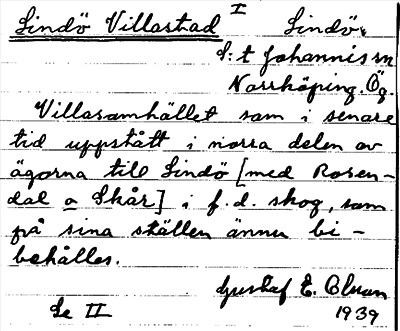 Lindö Villastad I Lindö,
S:t Johannis sn
Norrköping. Ög.
Villasamhället som i senare
tid uppstått i norra delen av
ägorna till Lindö [med Rosen-
dal o Skår] i f.d. skog, som
på sina ställen ännu bi-
behålles.
Gustaf E. Olsson
Se II 1939